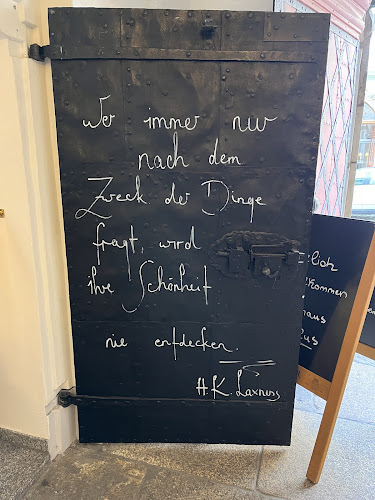 Wer immer nur
nach dem
Zweck der Dinge
fragt, wird
ihre Schönheit
nie entdecken.
H.K. Laxness